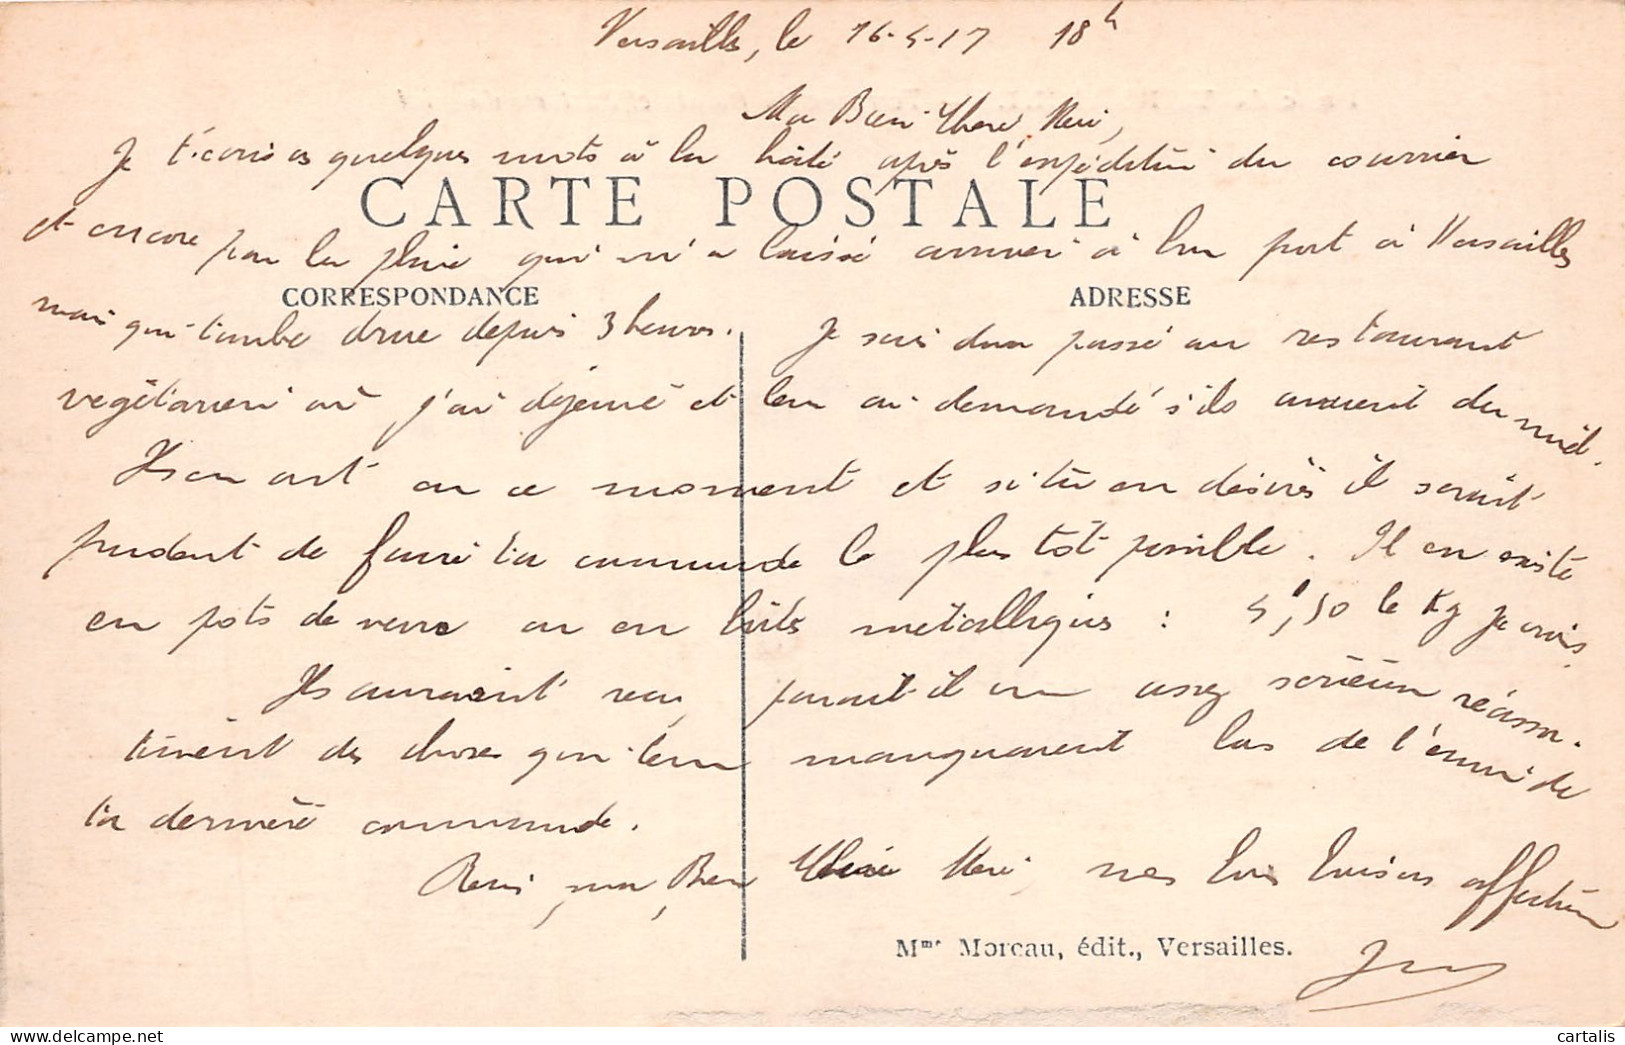 Versailles, le 16-5-17 18h
Ma Bien Chère Mère,
Je t'écris ces quelques mots à la hâte après l'expédition du courrier
CARTE POSTALE
et encore par la pluie qui m'a laissé arriver à bon port à Versailles
CORRESPONDANCE
ADRESSE
mais qui tombe drue depuis 3 heures. Je suis donc passé au restaurant
végétarien où j'ai déjeuné et leur ai demandé s'ils avaient du miel.
Ils en ont en ce moment et si tu en désires il serait
prudent de faire ta commande le plus tôt possible. Il en existe
en pots de verre ou en boîtes métalliques : 5f,50 le Kg je crois.
Ils auraient reçu paraît-il un assez sérieux réassor-
timent des choses qui leur manquaient lors de l'envoi de
ta dernière commande.
Reçois, ma Bien Chère Mère, mes bons baisers affectueux
Mme Moreau, édit., Versailles.
cartalis